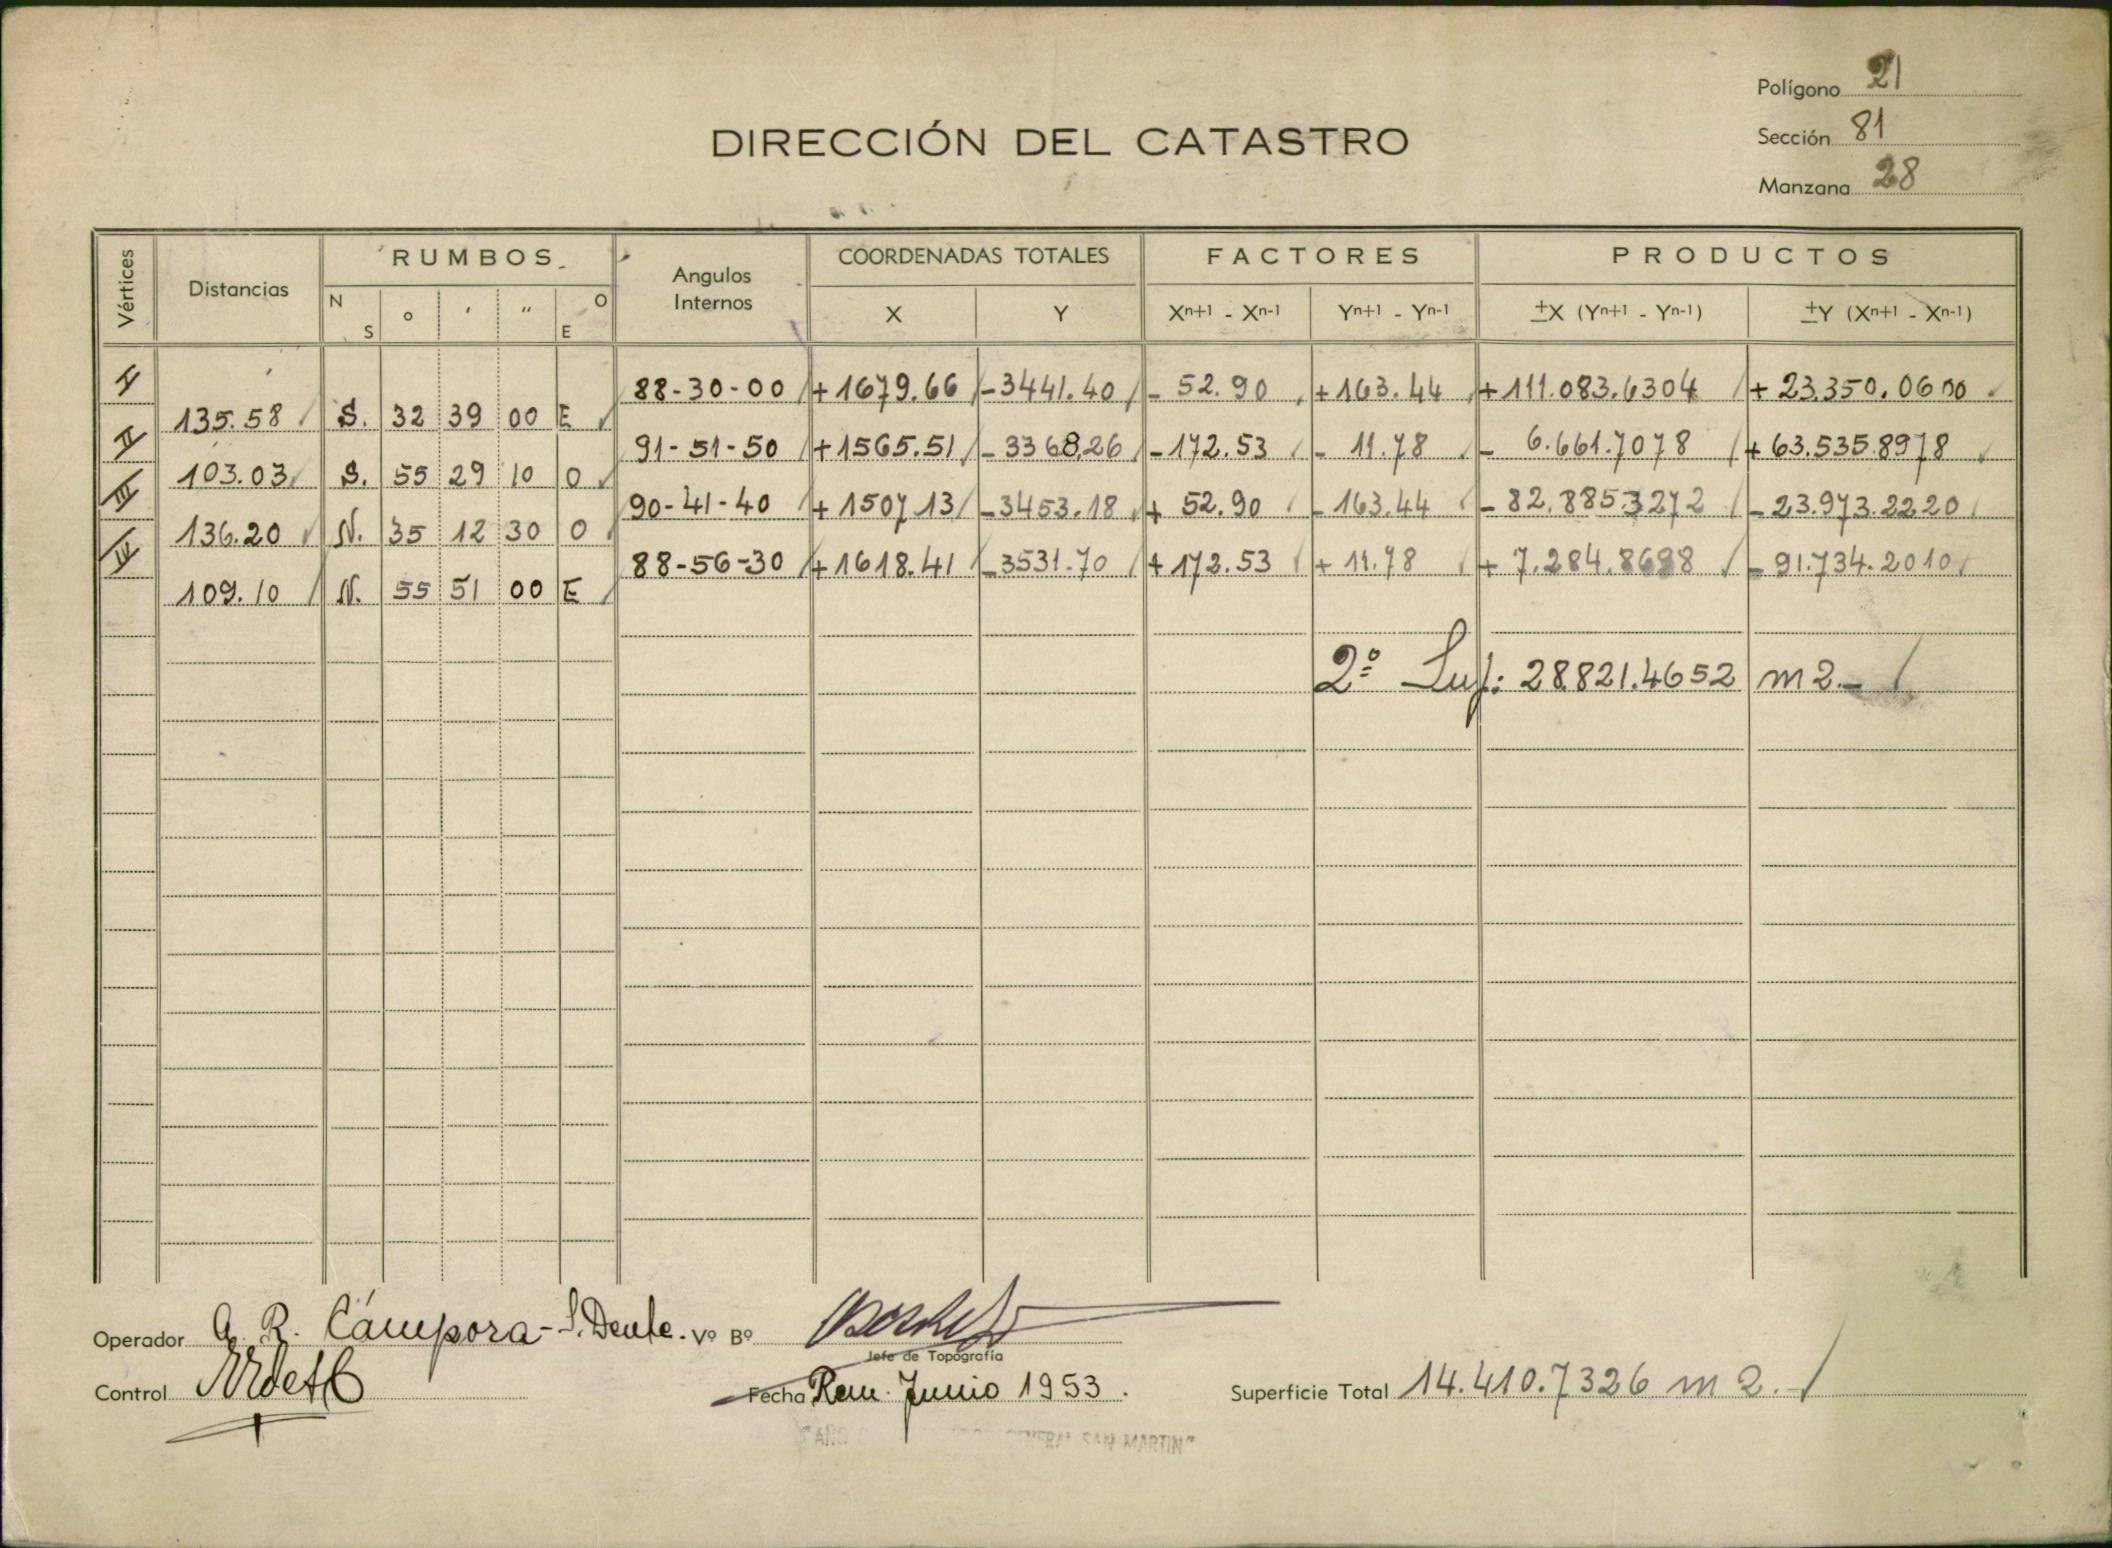 Polígono 21
Sección 81
Manzana 28
DIRECCIÓN DEL CATASTRO
Vértices Distancias RUMBOS Angulos Internos COORDENADAS TOTALES FACTORES PRODUCTOS
N S ° ' " O E X Y Xn+1 - Xn-1 Yn+1 - Yn-1 ±X (Yn+1 - Yn-1) ±Y (Xn+1 - Xn-1)
I 88-30-00 +1679.66 -3441.40 - 52.90 +163.44 +111.083.6304 +23.350.0600
135.58 S. 32 39 00 E
II 91-51-50 +1565.51 -3368.26 -172.53 - 11.78 - 6.661.7078 +63.535.8978
103.03 S. 55 29 10 O
III 90-41-40 +1507.13 -3453.18 + 52.90 -163.44 -82.885.3272 -23.973.2220
136.20 N. 35 12 30 O
IV 88-56-30 +1618.41 -3531.70 +172.53 + 11.78 + 7.284.8698 -91.734.2010
109.10 N. 55 51 00 E
2º Sup: 28.821.4652 m2.-
Operador A. R. Cámpora - S. Dente. Vº Bº
Jefe de Topografía
Control
Fecha Ram. Junio 1953.
Superficie Total 14.410.7326 m2.-
"AÑO GENERAL SAN MARTIN"